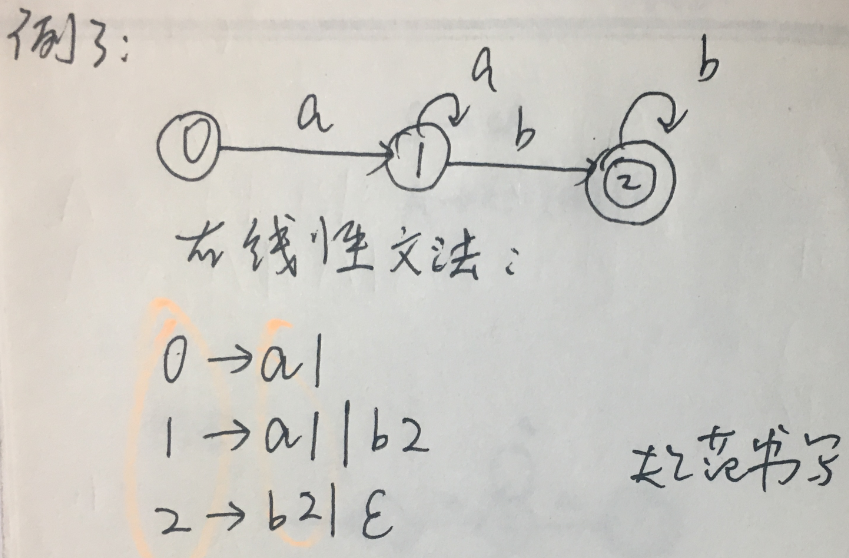 例3:
a
b
0
a
1
b
2
右线性文法:
0 → a1
1 → a1 | b2
2 → b2 | ε
规范书写